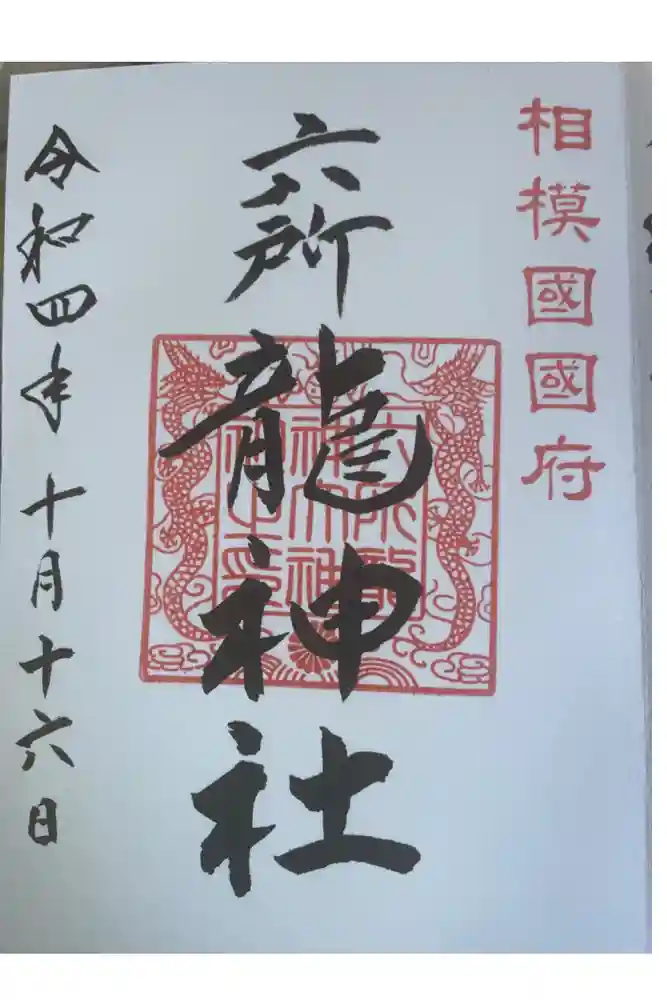 相模國國府
六所龍神社
令和四年十月十六日